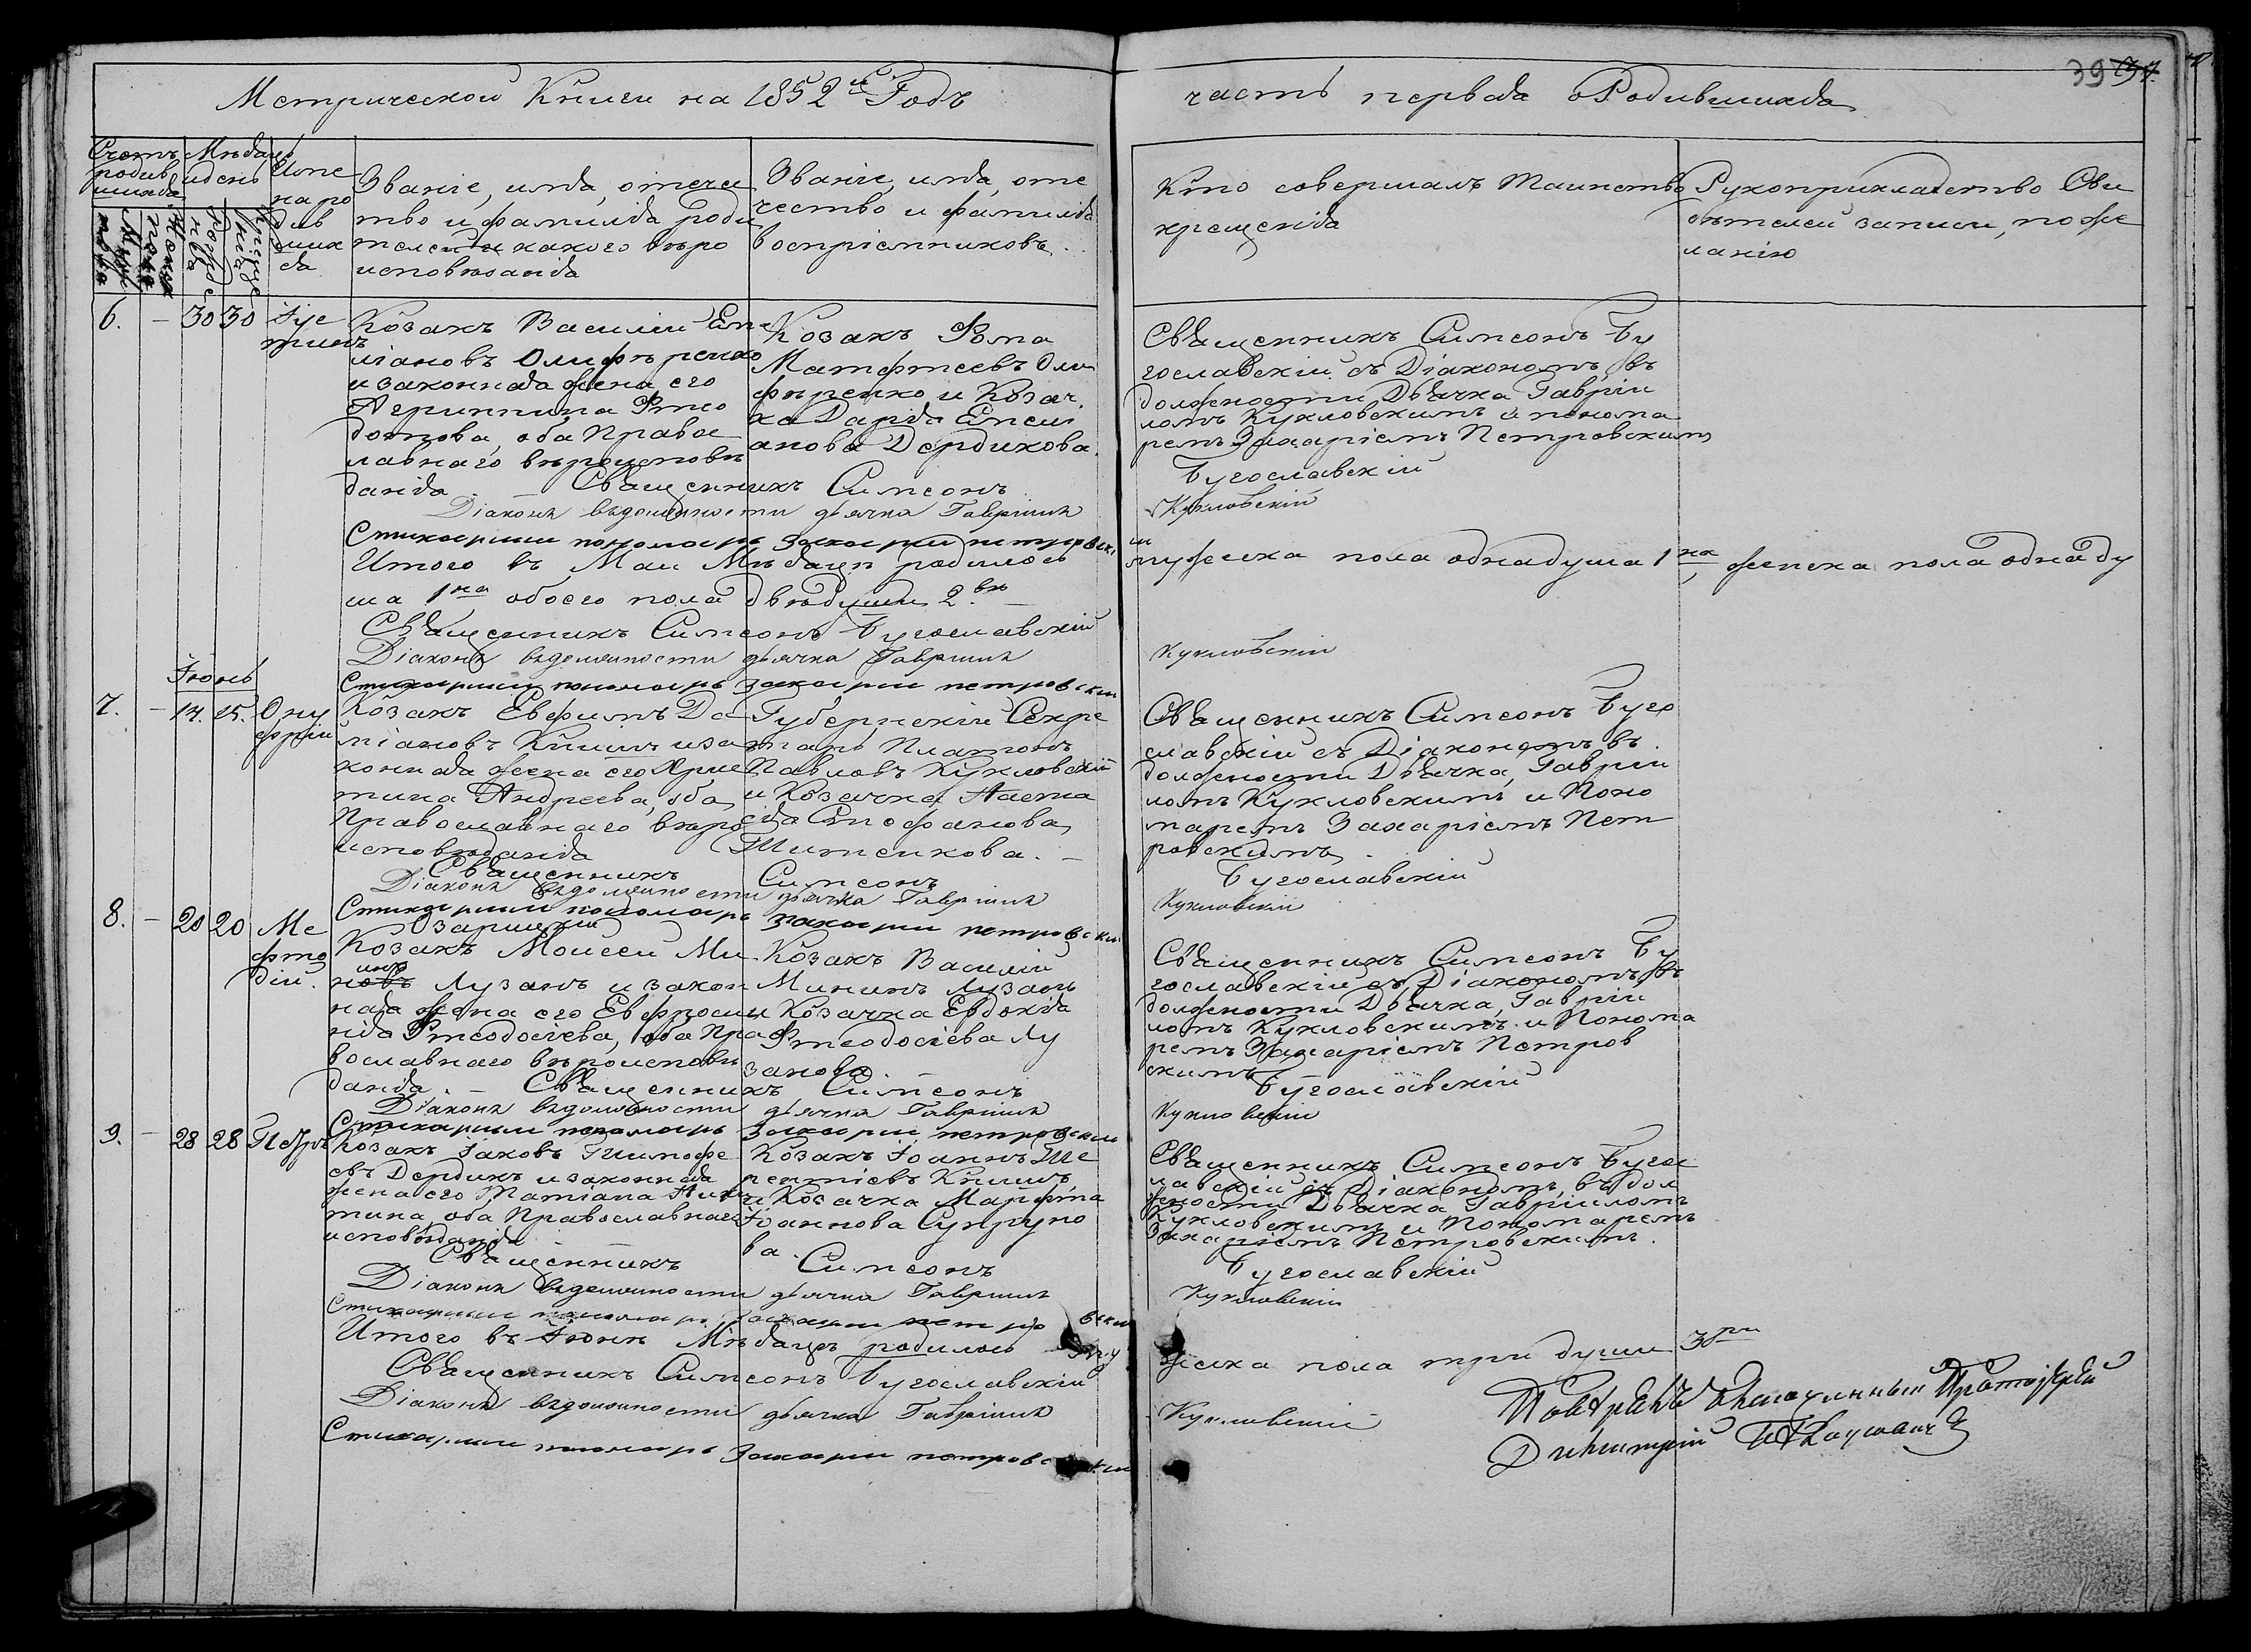 Метрической Книги на 1852й Годъ
часть первая о Родившихся
39
Счетъ родив шихся
Мѣсяцъ и день
Име на ро див ших ся
Званіе, имя, отечес
тво и фамилія роди
телей и какого вѣро
исповѣданія
Званіе, имя, оте
чество и фамилія
воспріемниковъ.
Кто совершалъ таинство
крещенія
Рукоприкладство Сви
дѣтелей записи, по же
ланію
6. – 30 30 Іус
тинъ
Козакъ Василій Еми
ліановъ Олифѣренко
и законная жена его
Агриппина Ѳео
дотова, оба Правос
лавнаго вѣроисповѣ
данія
Козакъ Ѳома
Матѳеевъ Оли
фѣренко и Козач
ка Дарія Емели
анова Дердикова.
Священникъ Симеонъ Бу
гославскій съ Діакономъ въ
должности Дьячка Гаврі
ломъ Кукловскимъ и понома
ремъ Захаріемъ Петровскимъ
Священникъ Симеонъ Бугославскій
Діаконъ въдолжности дьячка Гавріилъ Кукловскій
Стихарный пономарь Захарій петровскій
Итого въ Маи Мѣсяцѣ родилось мужеска пола однадуша 1на, женска пола одна ду
ша 1на обоего пола двѣдуши 2.вѣ
Священникъ Симеонъ Бугославскій
Діаконъ въдолжности дьячка Гавріилъ Кукловскій
Стихарный пономарь Захарій петровскій
Іюнь
7. – 14. 15. Ону
фрій
Козакъ Евфимъ Да
міановъ Книшъ иза
конная жена его Хрис
тина Андреева, оба
Православнаго вѣро
исповѣданія
Губернскій Секре
тарь Платонъ
Павловъ Кукловскій
и Козачка Анаста
сія Стефанова
Шитикова. –
Священникъ Симеонъ Буго
славскій съ Діакономъ въ
должности Дьячка, Гаврі
ломъ Кукловскимъ и Поно
маремъ Захаріемъ Пет
ровскимъ.
Священникъ Симеонъ Бугославскій
Діаконъ въдолжности дьячка Гавріилъ Кукловскій
Стихарный пономарь Захарій петровскій
8. – 20 20 Ме
ѳо
дій.
Козакъ Моисей Ми
нинъ Лузанъ и закон
ная жена его Евфроси
нія Ѳеодосіева, оба Пра
вославнаго вѣроисповѣ
данія. –
Козакъ Василій
Мининъ Лузанъ
и Козачка Евдокія
Ѳеодосіева Лу
занова.
Священникъ Симеонъ Бу
гославскій съ Діакономъ въ
должности Дьячка, Гаврі
ломъ Кукловскимъ и Понома
ремъ Захаріемъ Петров
скимъ
Священникъ Симеонъ Бугославскій
Діаконъ въдолжности дьячка Гавріилъ Кукловскій
Стихарный пономарь Захарій петровскій
9. – 28 28 Петръ
Козакъ Іаковъ Тимофе
евъ Дердикъ и законная
жена его Татіана Ники
тина, оба Православнаго
исповѣданія
Козакъ Іоаннъ Те
рентіевъ Книшъ
и Козачка Марфа
Іоаннова Супруно
ва.
Священникъ Симеонъ Бугос
лавскій съ Діакономъ, въ дол
жности Дьячка Гавріиломъ
Кукловскимъ и Пономаремъ
Захаріемъ Петровскимъ.
Священникъ Симеонъ Бугославскій
Діаконъ въдолжности дьячка Гавріилъ Кукловскій
Стихарный пономарь Захарій петровскій
Итого въ Іюнѣ Мѣсяцѣ родилось му жеска пола три души 3ри
Священникъ Симеонъ Бугославскій
Діаконъ въдолжности дьячка Гавріилъ Кукловскій
Стихарный пономарь Захарій петровскій
Протоіерей
Димитрій